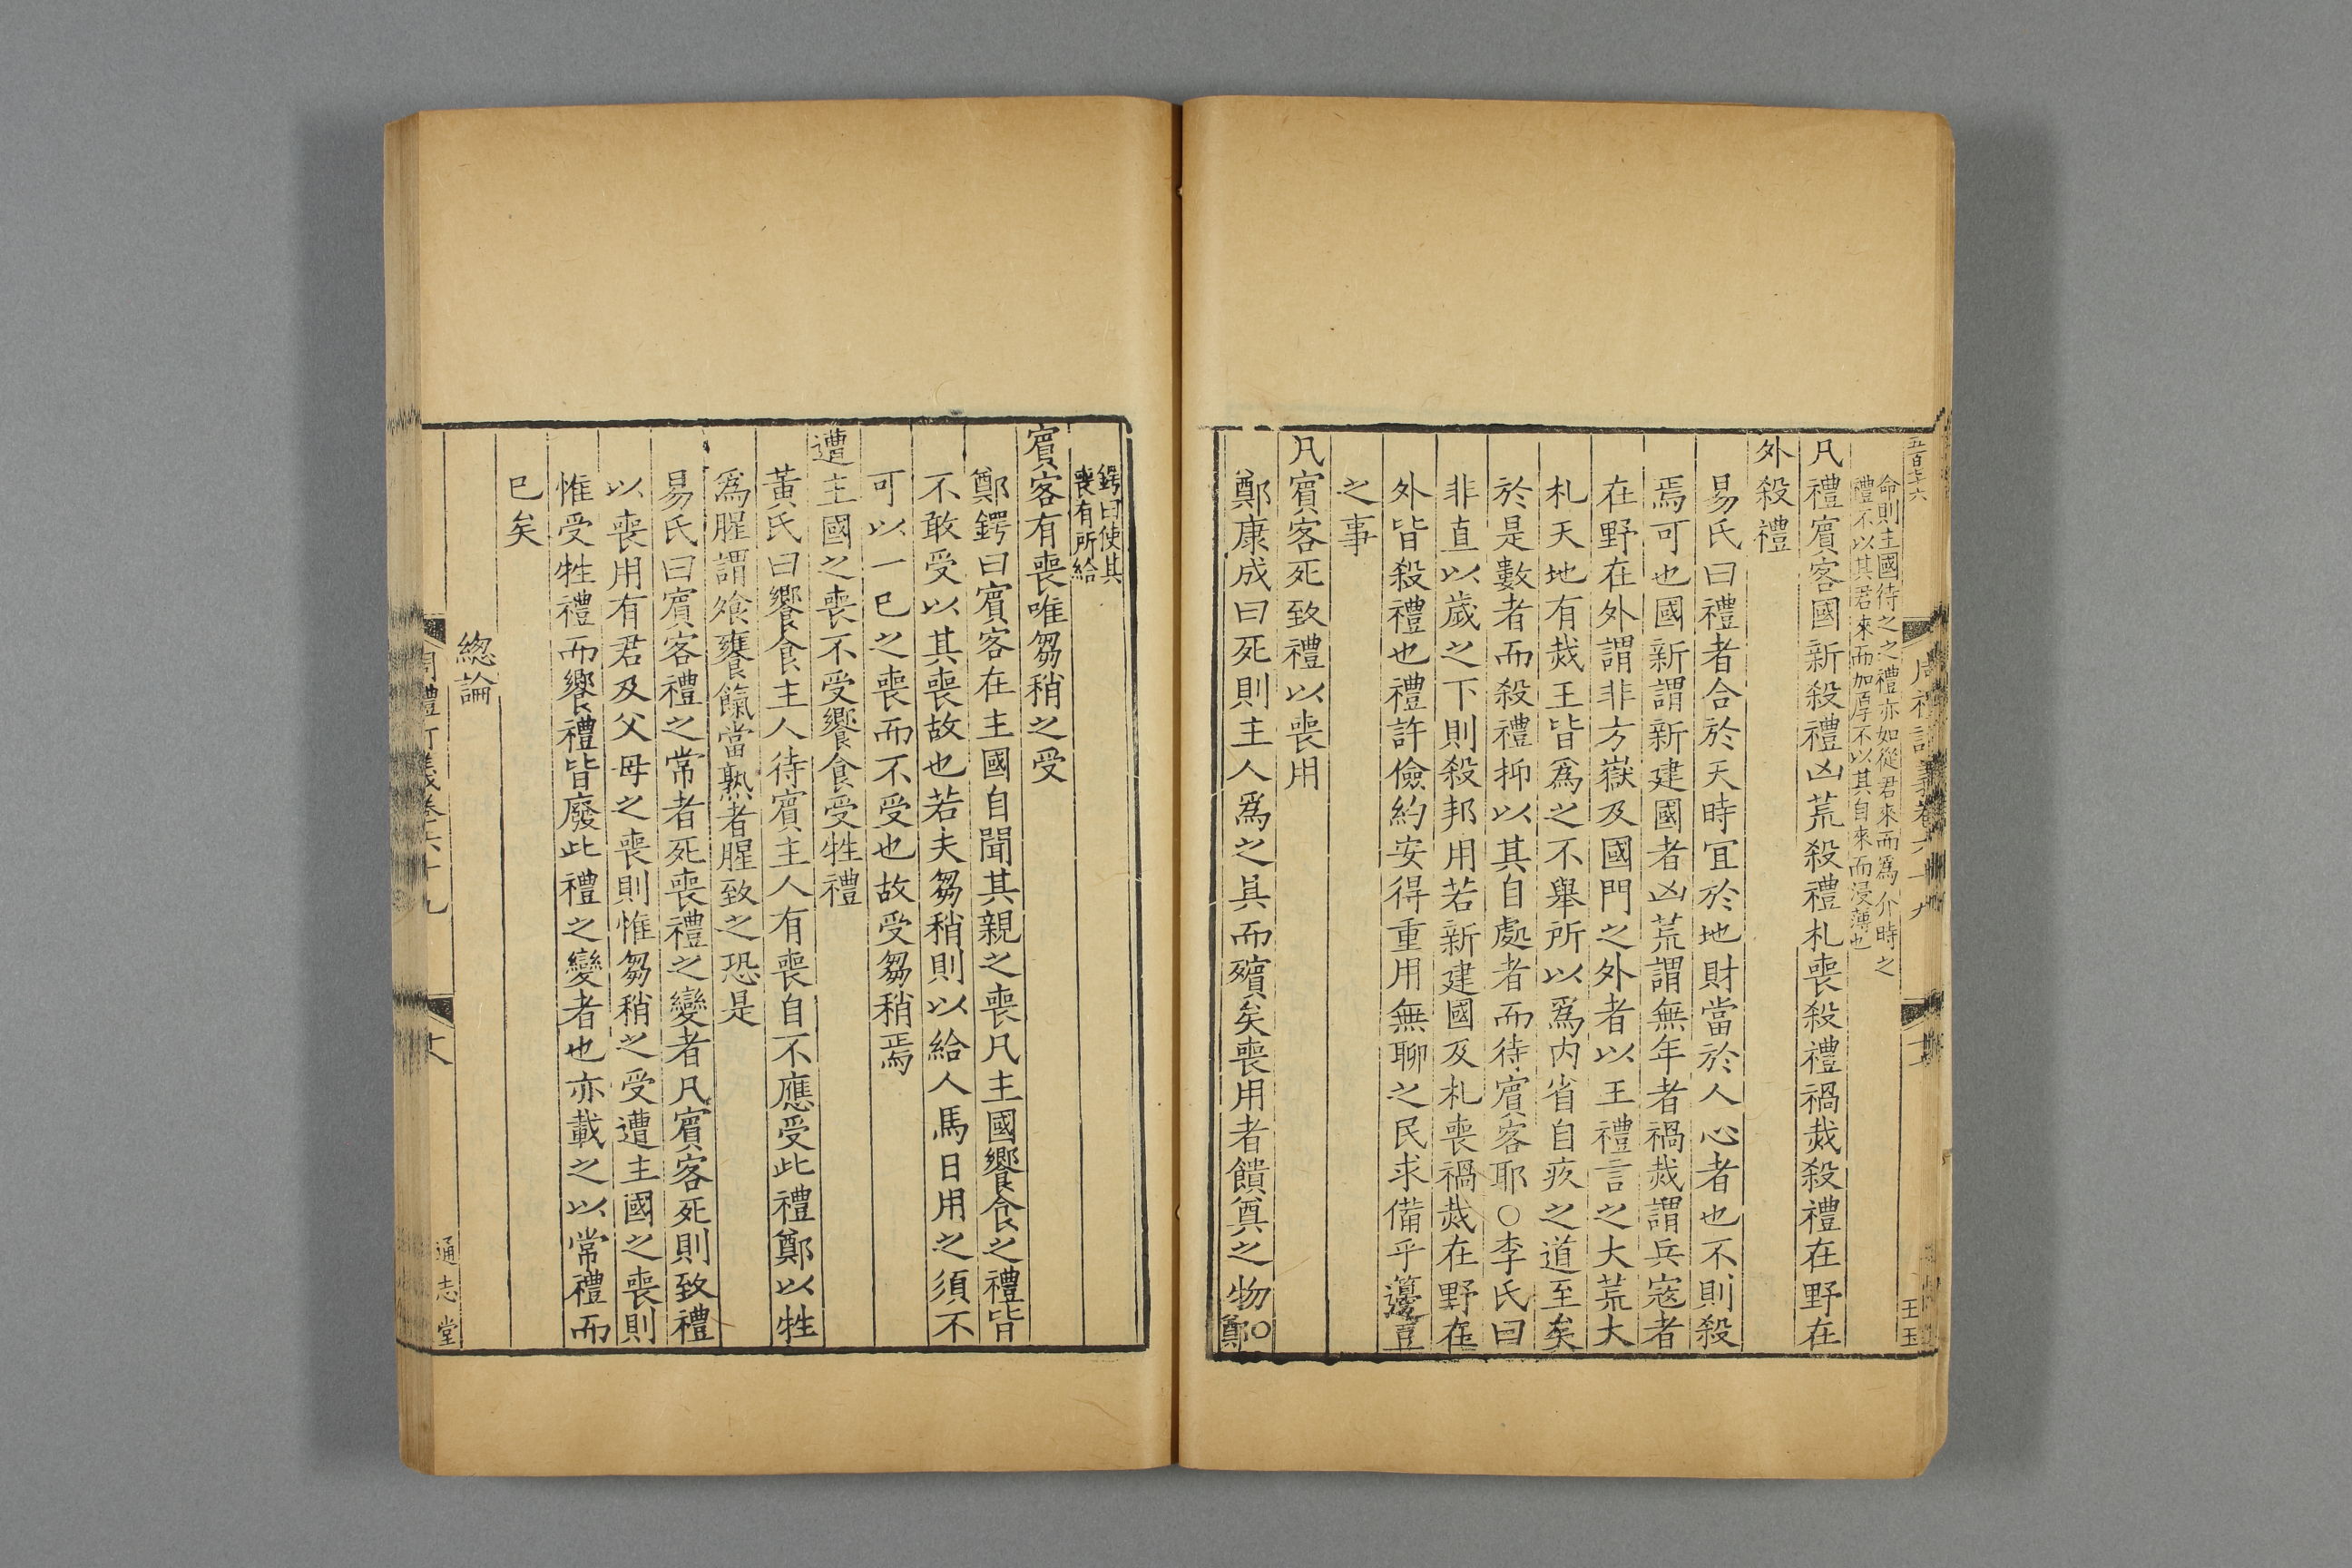 五百七六
命則主國待之之禮亦如從君來而爲介時之
禮不以其君來而加厚不以其自來而浸薄也
凡禮賓客國新殺禮凶荒殺禮札喪殺禮禍烖殺禮在野在
外殺禮
易氏曰禮者合於天時宜於地財當於人心者也不則殺
焉可也國新謂新建國者凶荒謂無年者禍烖謂兵寇者
在野在外謂非方嶽及國門之外者以王禮言之大荒大
札天地有烖王皆爲之不舉所以爲内省自疚之道至矣
於是數者而殺禮抑以其自處者而待賓客耶○李氏曰
非直以歲之下則殺邦用若新建國及札喪禍烖在野在
外皆殺禮也禮許儉約安得重用無聊之民求備乎籩豆
之事
凡賓客死致禮以喪用
鄭康成曰死則主人爲之具而殯矣喪用者饋奠之物○鄭
鍔曰使其
喪有所給
賓客有喪唯芻稍之受
鄭鍔曰賓客在主國自聞其親之喪凡主國饗食之禮皆
不敢受以其喪故也若夫芻稍則以給人馬日用之須不
可以一已之喪而不受也故受芻稍焉
遭主國之喪不受饗食受牲禮
黃氏曰饗食主人待賓主人有喪自不應受此禮鄭以牲
爲腥謂飧饔餼當熟者腥致之恐是
易氏曰賓客禮之常者死喪禮之變者凡賓客死則致禮
以喪用有君及父母之喪則惟芻稍之受遭主國之喪則
惟受牲禮而饗禮皆廢此禮之變者也亦載之以常禮而
已矣
總論
周禮訂義卷六十九
通志堂